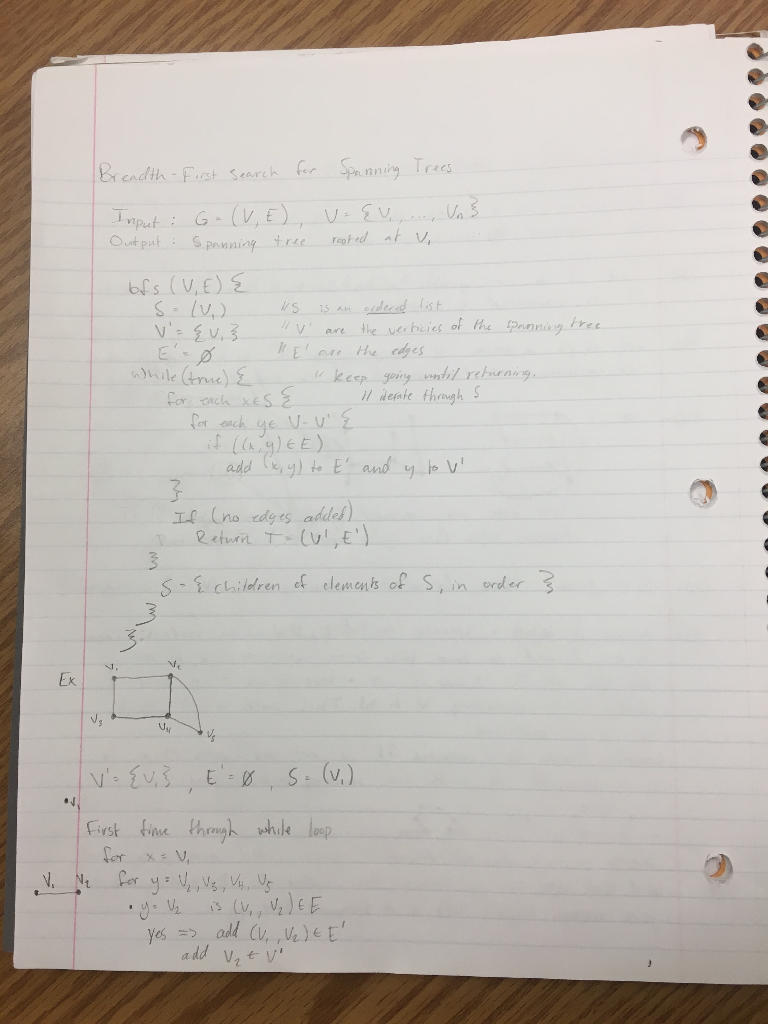 Breadth-First Search for Spanning Trees
Input: G=(V,E), V={V₁,...,Vₙ}
Output: Spanning tree rooted at V₁
bfs (V,E) {
S=(V₁) //S is an ordered list
V'={V₁} //V' are the verticies of the spanning tree
E'=∅ //E' are the edges
while(true) { //keep going until returning.
for each x∈S { //iterate through S
for each y∈ V-V' {
if ((x,y)∈E)
add (x,y) to E' and y to V'
}
If (no edges added)
Return T=(V',E')
}
S={children of elements of S, in order}
}
}
Ex
V₁ V₂
V₃ V₄ V₅
V'={V₁}, E'=∅, S=(V₁)
•V₁
First time through while loop
for x=V₁
V₁ V₂ for y=V₂,V₃,V₄,V₅
•y=V₂ is (V₁,V₂)∈E
yes => add (V₁,V₂)∈E'
add V₂ ∈ V'